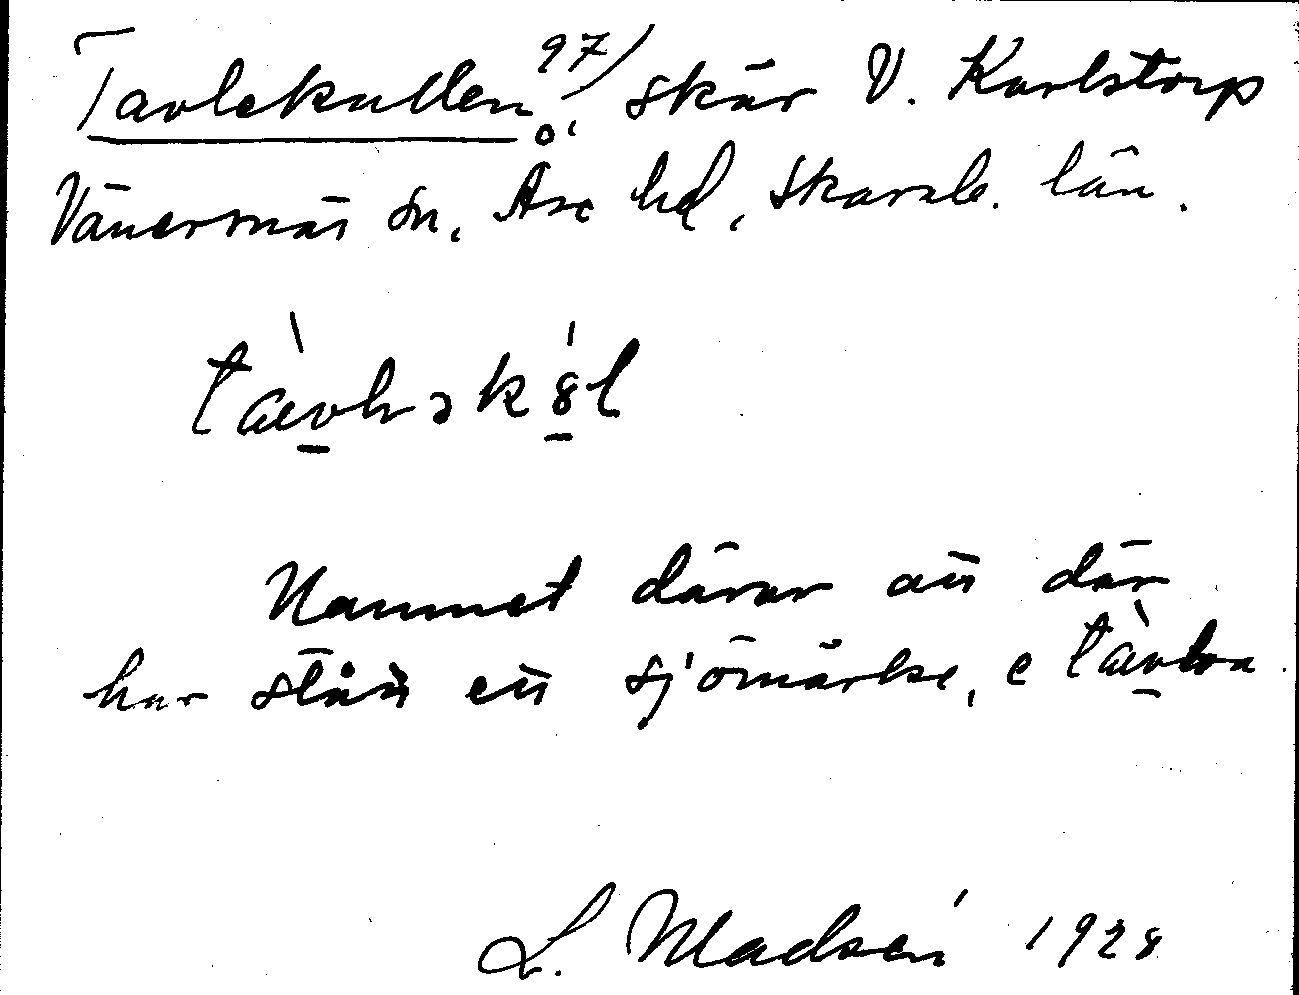 Tavlekullen 97/ skär V. Karlstorp
Vänersnäs sn, Åse hd, Skarab. län.
Namnet därav att där
har stått ett sjömärke, e
L. Madsén 1928